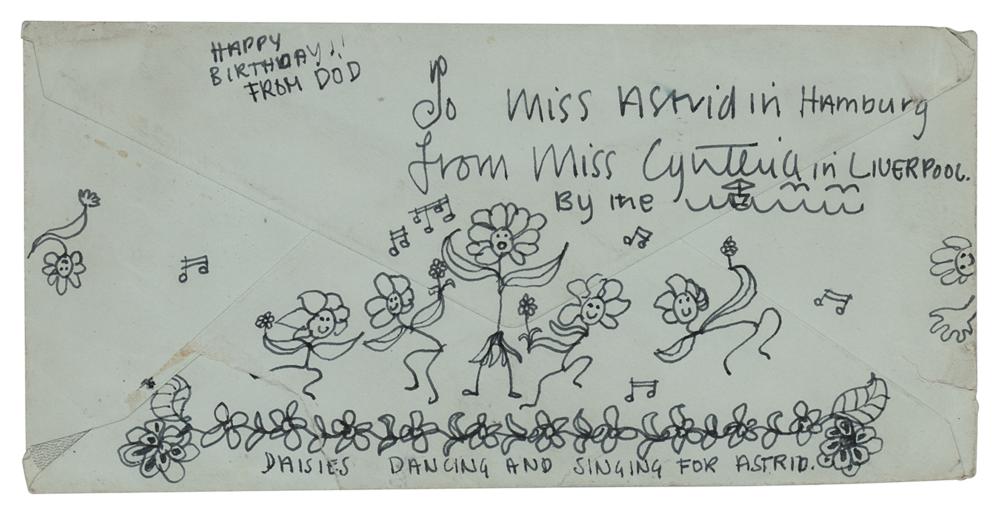 HAPPY
BIRTHDAY!!
FROM DOD
To Miss Astrid in Hamburg
from Miss Cynthia in LIVERPOOL.
By the
DAISIES DANCING AND SINGING FOR ASTRID.